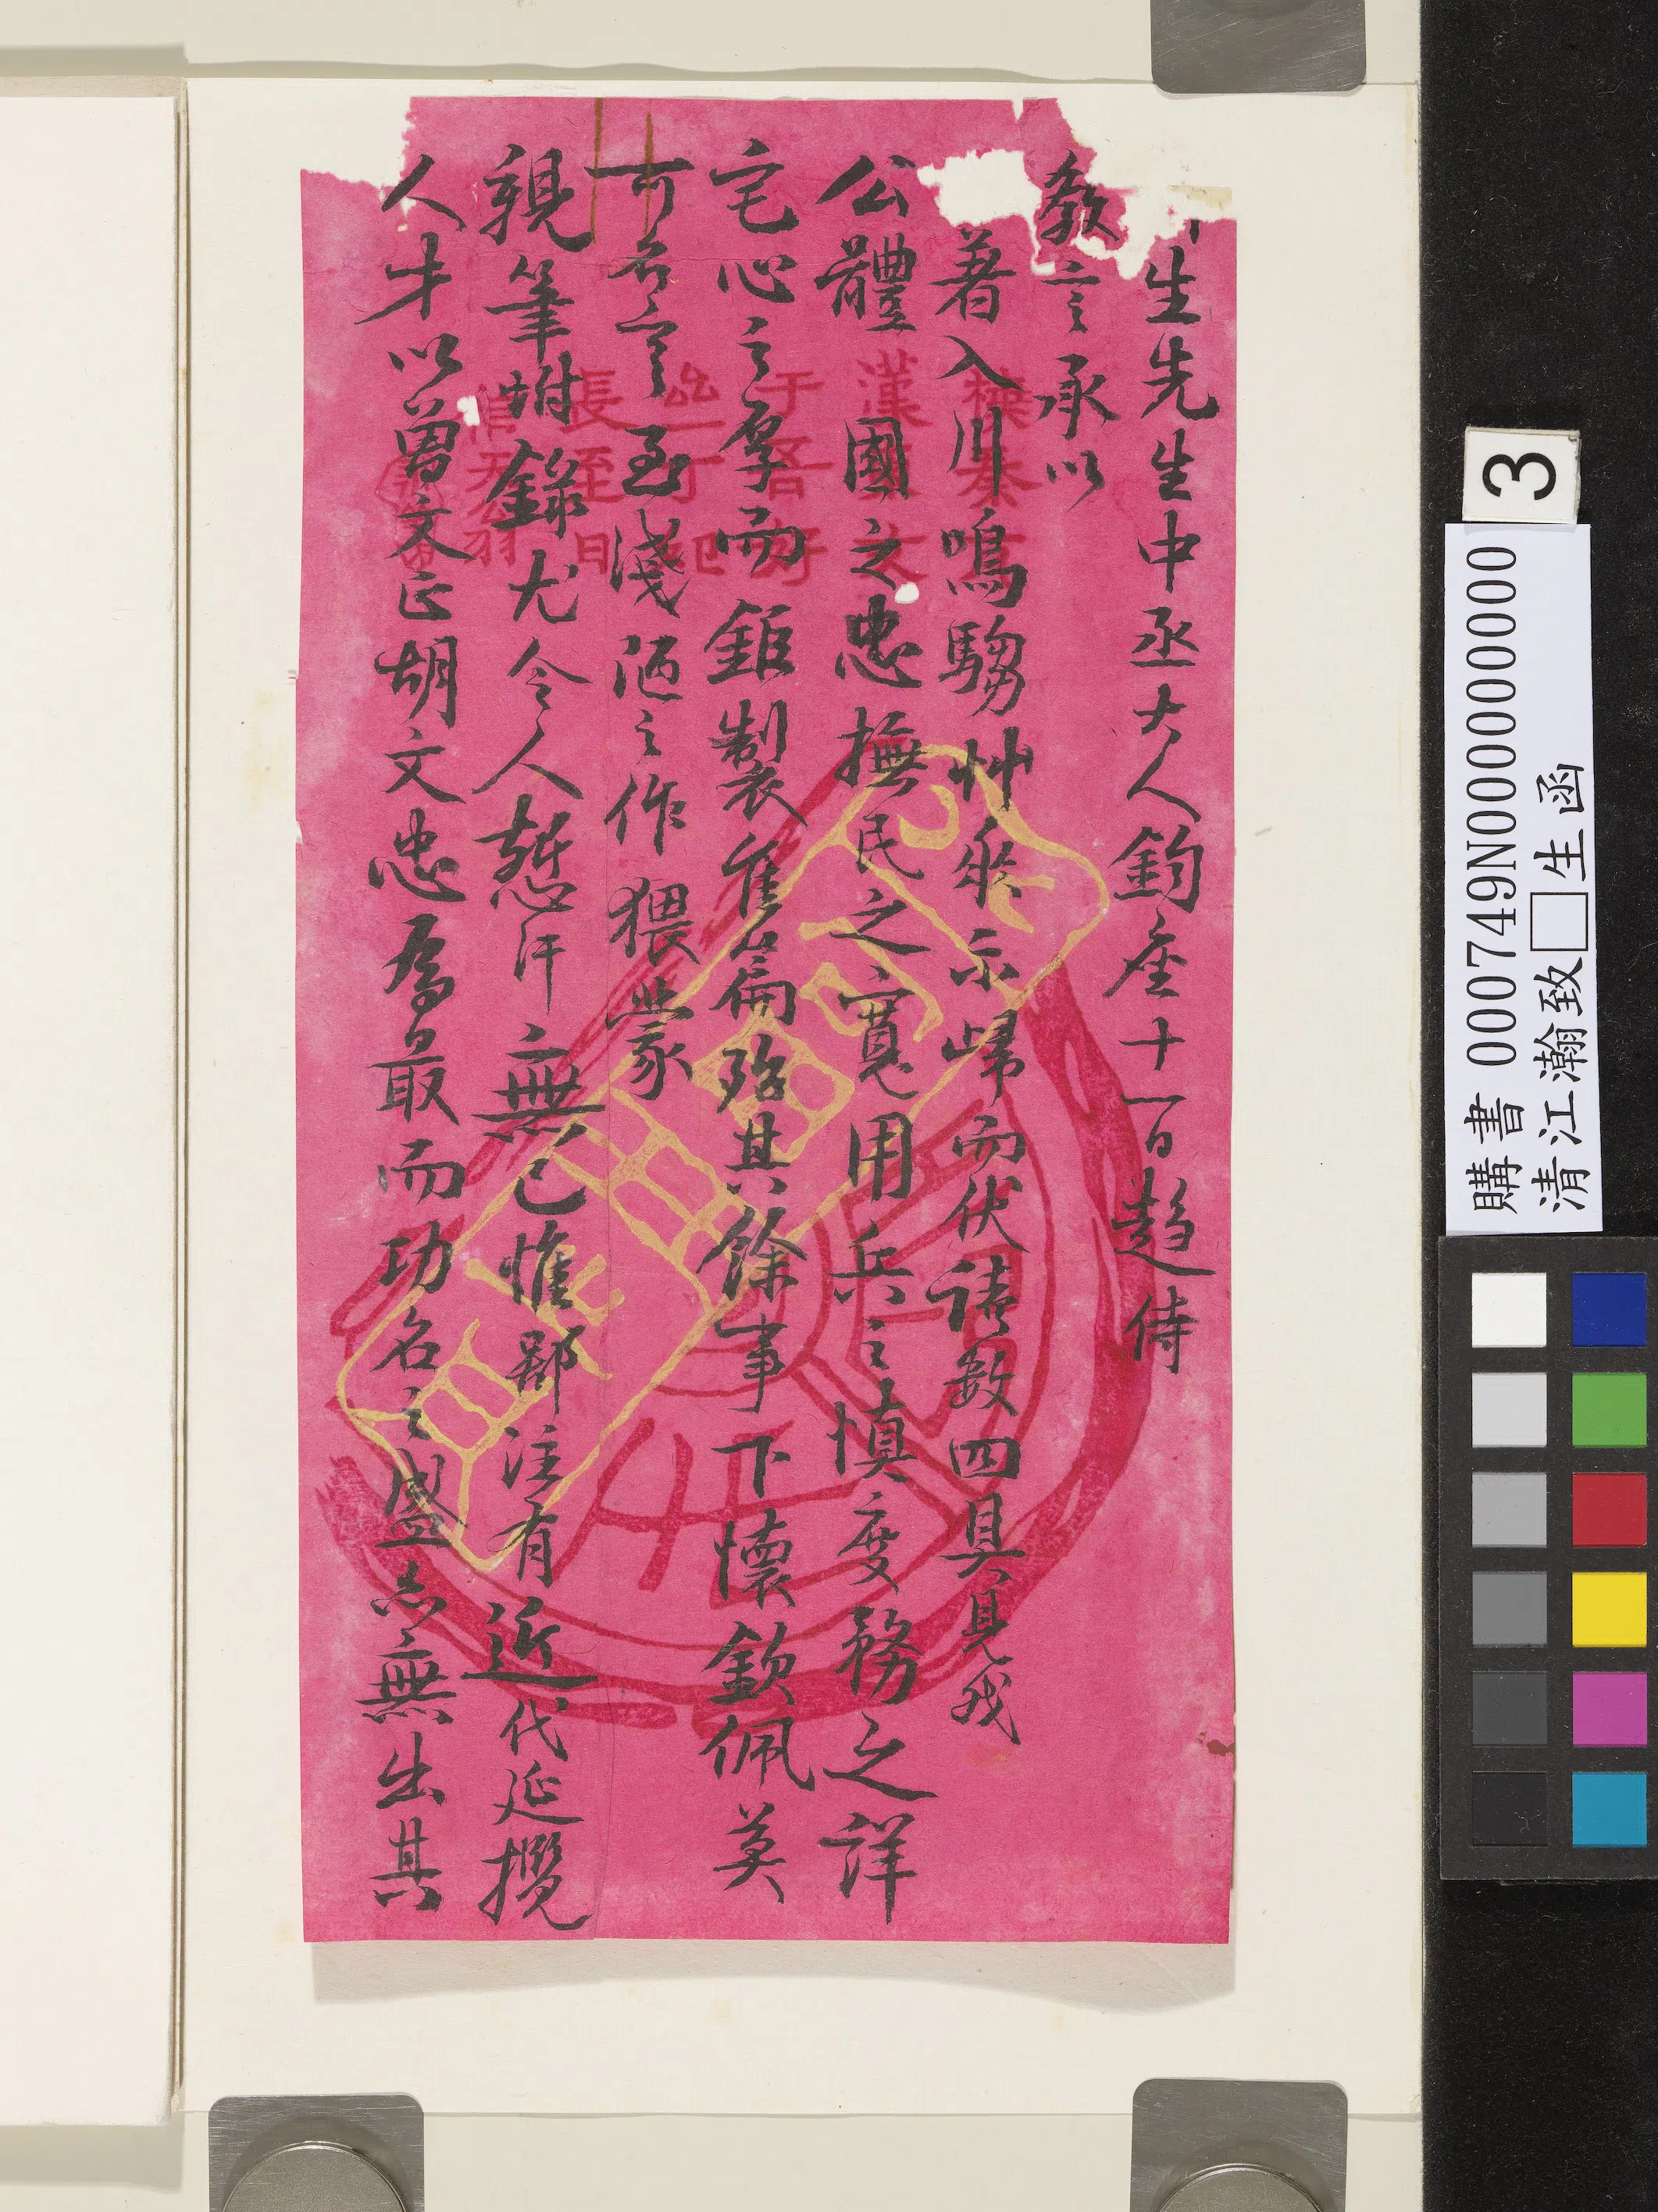 生先生中丞大人鈞座十一日趨侍
教言承以
著入川鳴騶艸承示歸而伏讀數四具見我
公體國之忠撫民之寬用兵之慎度務之詳
宅心之厚而鉅製佳篇殆其餘事下懷欽佩莫
可名言至淺陋之作猥蒙
親筆坿錄尤令人慙汗無已惟鄙注有近代延攬
人才以曾文正胡文忠為最而功名之盛亦無出其
漢
于吾好
長至日
3
購書 000749N000000000
清江瀚致□生函